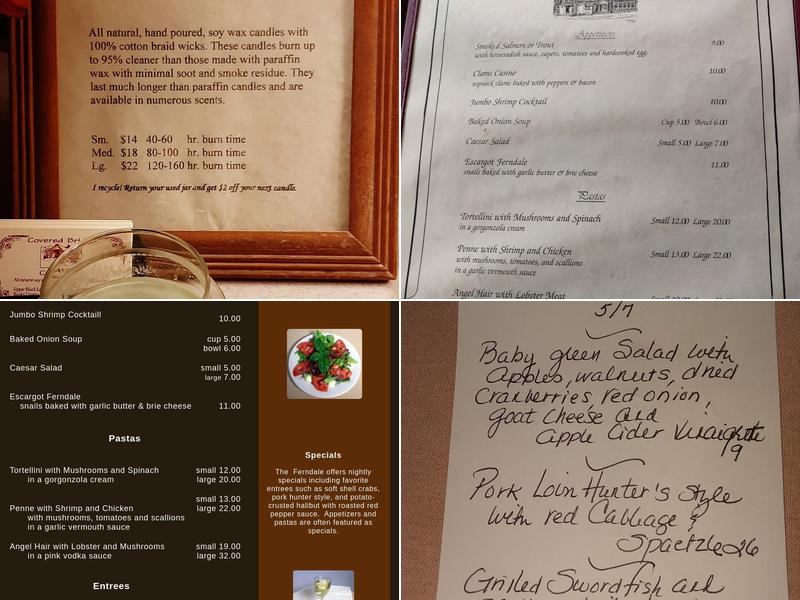 All natural, hand poured, soy wax candles with
100% cotton braid wicks. These candles burn up
to 95% cleaner than those made with paraffin
wax with minimal soot and smoke residue. They
last much longer than paraffin candles and are
available in numerous scents.
Sm. $14 40-60 hr. burn time
Med. $18 80-100 hr. burn time
Lg. $22 120-160 hr. burn time
I recycle! Return your used jar and get $2 off your next candle.
Covered Bri
Appetizers
Smoked Salmon or Trout 9.00
with horseradish sauce, capers, tomatoes and hardcooked egg.
Clams Casino 10.00
topneck clams baked with peppers & bacon
Jumbo Shrimp Cocktail 10.00
Baked Onion Soup Cup 5.00 Bowl 6.00
Caesar Salad Small 5.00 Large 7.00
Escargot Ferndale 11.00
snails baked with garlic butter & brie cheese
Pastas
Tortellini with Mushrooms and Spinach Small 12.00 Large 20.00
in a gorgonzola cream
Penne with Shrimp and Chicken Small 13.00 Large 22.00
with mushrooms, tomatoes, and scallions
in a garlic vermouth sauce
Angel Hair with Lobster Meat
Jumbo Shrimp Cocktaill 10.00
Baked Onion Soup cup 5.00
bowl 6.00
Caesar Salad small 5.00
large 7.00
Escargot Ferndale
snails baked with garlic butter & brie cheese 11.00
Pastas
Tortellini with Mushrooms and Spinach small 12.00
in a gorgonzola cream large 20.00
small 13.00
Penne with Shrimp and Chicken large 22.00
with mushrooms, tomatoes and scallions
in a garlic vermouth sauce
Angel Hair with Lobster and Mushrooms small 19.00
in a pink vodka sauce large 32.00
Entrees
Specials
The Ferndale offers nightly
specials including favorite
entrees such as soft shell crabs,
pork hunter style, and potato-
crusted halibut with roasted red
pepper sauce. Appetizers and
pastas are often featured as
specials.
5/7
Baby green Salad with
apples, walnuts, dried
Cranberries, red onion,
goat cheese and
apple Cider Vinaigrette
9
Pork Loin Hunter's Style
with red Cabbage &
Spaetzle 26
Grilled Swordfish and